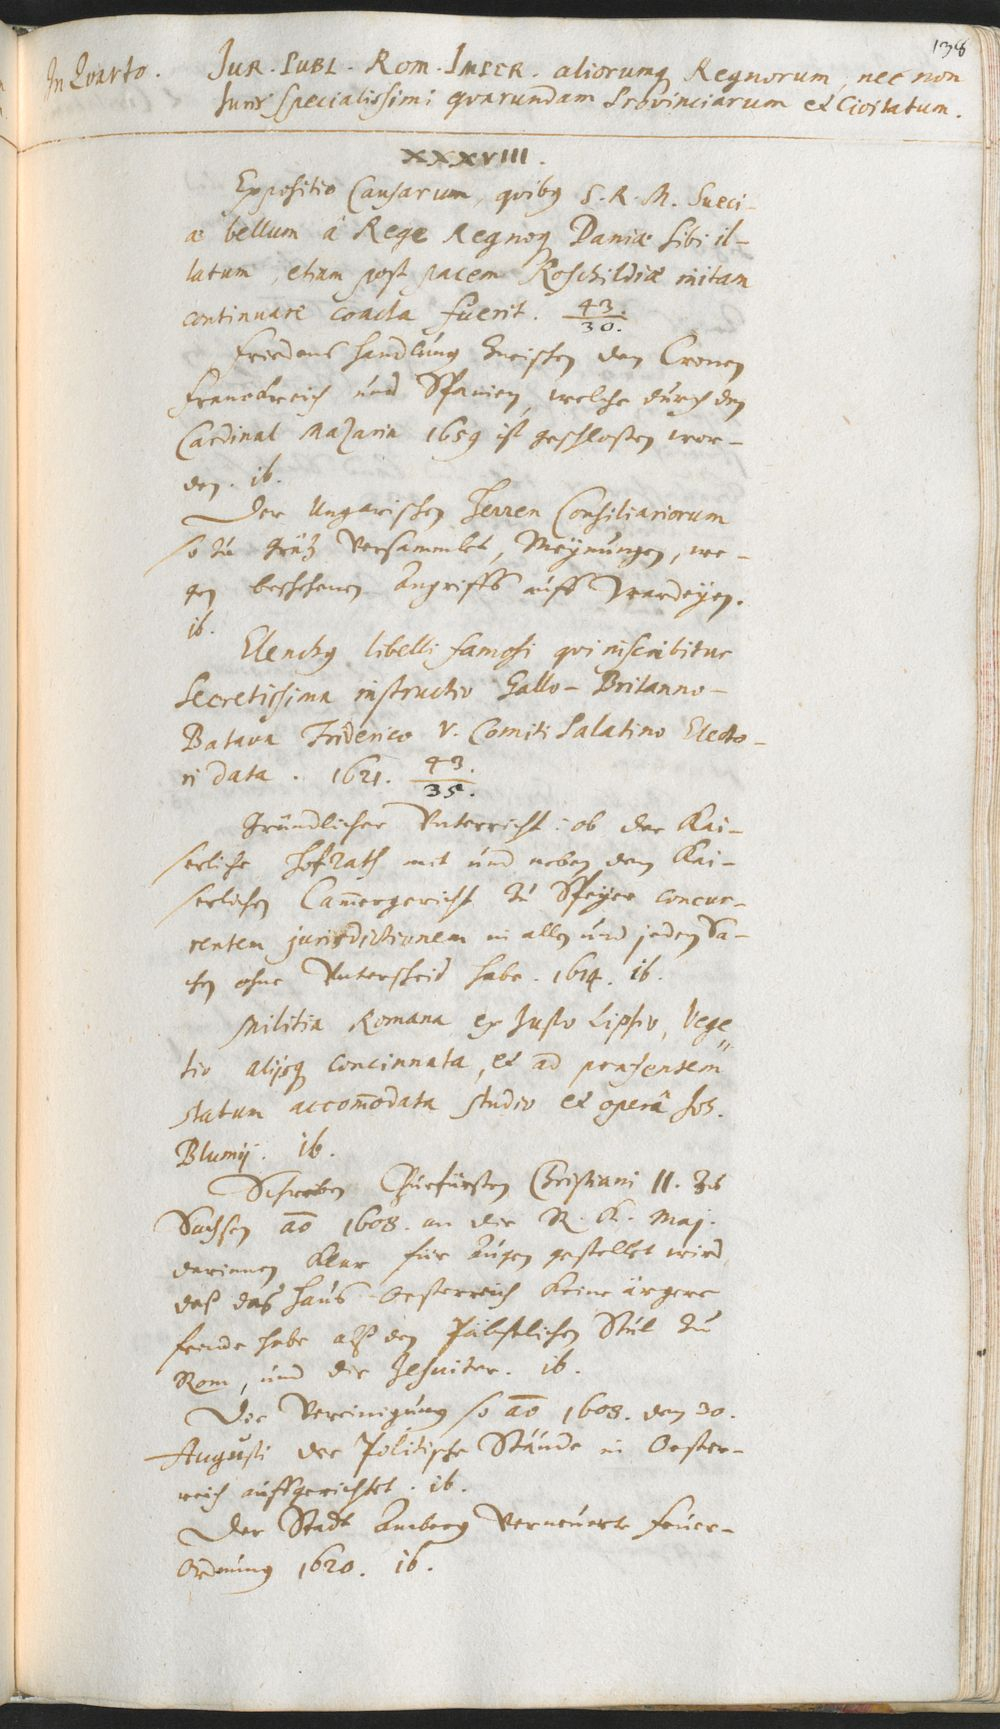 138
In Quarto. Jur. Publ. Rom. Imper. aliorumq Regnorum, nec non
Juris specialissimi quarundam Provinciarum et Civitatum.
XXXVIII.
Expositio Causarum, quibq S. R. M. Sueci-
æ bellum à Rege Regnoq Daniæ sibi il-
latum, etiam post pacem Roschildiæ initam
continuare coacta fuerit. 43./30.
Friedens handlung Zwischen den Cronen
Franckreich und Spanien, welche durch den
Cardinal Mazarin 1659 ist geschlossen wor-
den. ib.
Der Ungarischen Herren Consiliariorum
so zu Grätz versammlet, Meynungen, we-
gen beschehenen Angriffs auff Wardeyen.
ib.
Elenchq libelli famosi qui inscribitur
Secretissima instructio Gallo-Britanno-
Batava Friderico V. Comiti Palatino Electo-
ri data. 1621. 43./35.
Gründlicher Unterricht: ob der Kai-
serliche Hofrath mit und neben dem Kai-
serlichen Cam̄ergericht zu Speyer concur-
rentem jurisdictionem in allen und jeden Sa-
chen ohne Unterscheid habe. 1614. ib.
Militia Romana ex Justo Lipsio, Vege
tio alijsq concinnata, et ad praesentem
statum accom̄odata studio et operâ Joh.
Blumij. ib.
Schreiben Churfürsten Christiani II. zu
Sachsen aō 1608. an die R. K. Maj.
darinnen klar für Augen gestellet wird
daß das Haus Oesterreich keine ärgere
feinde habe alß den Päbstlichen Stul zu
Rom, und die Jesuiter. ib.
Die Vereinigung so aō 1608. den 30.
Augusti der Politische Stände in Oester-
reich auffgerichtet. ib.
Der Stadt Amberg Verneuerte Feuer-
Ordnung 1620. ib.